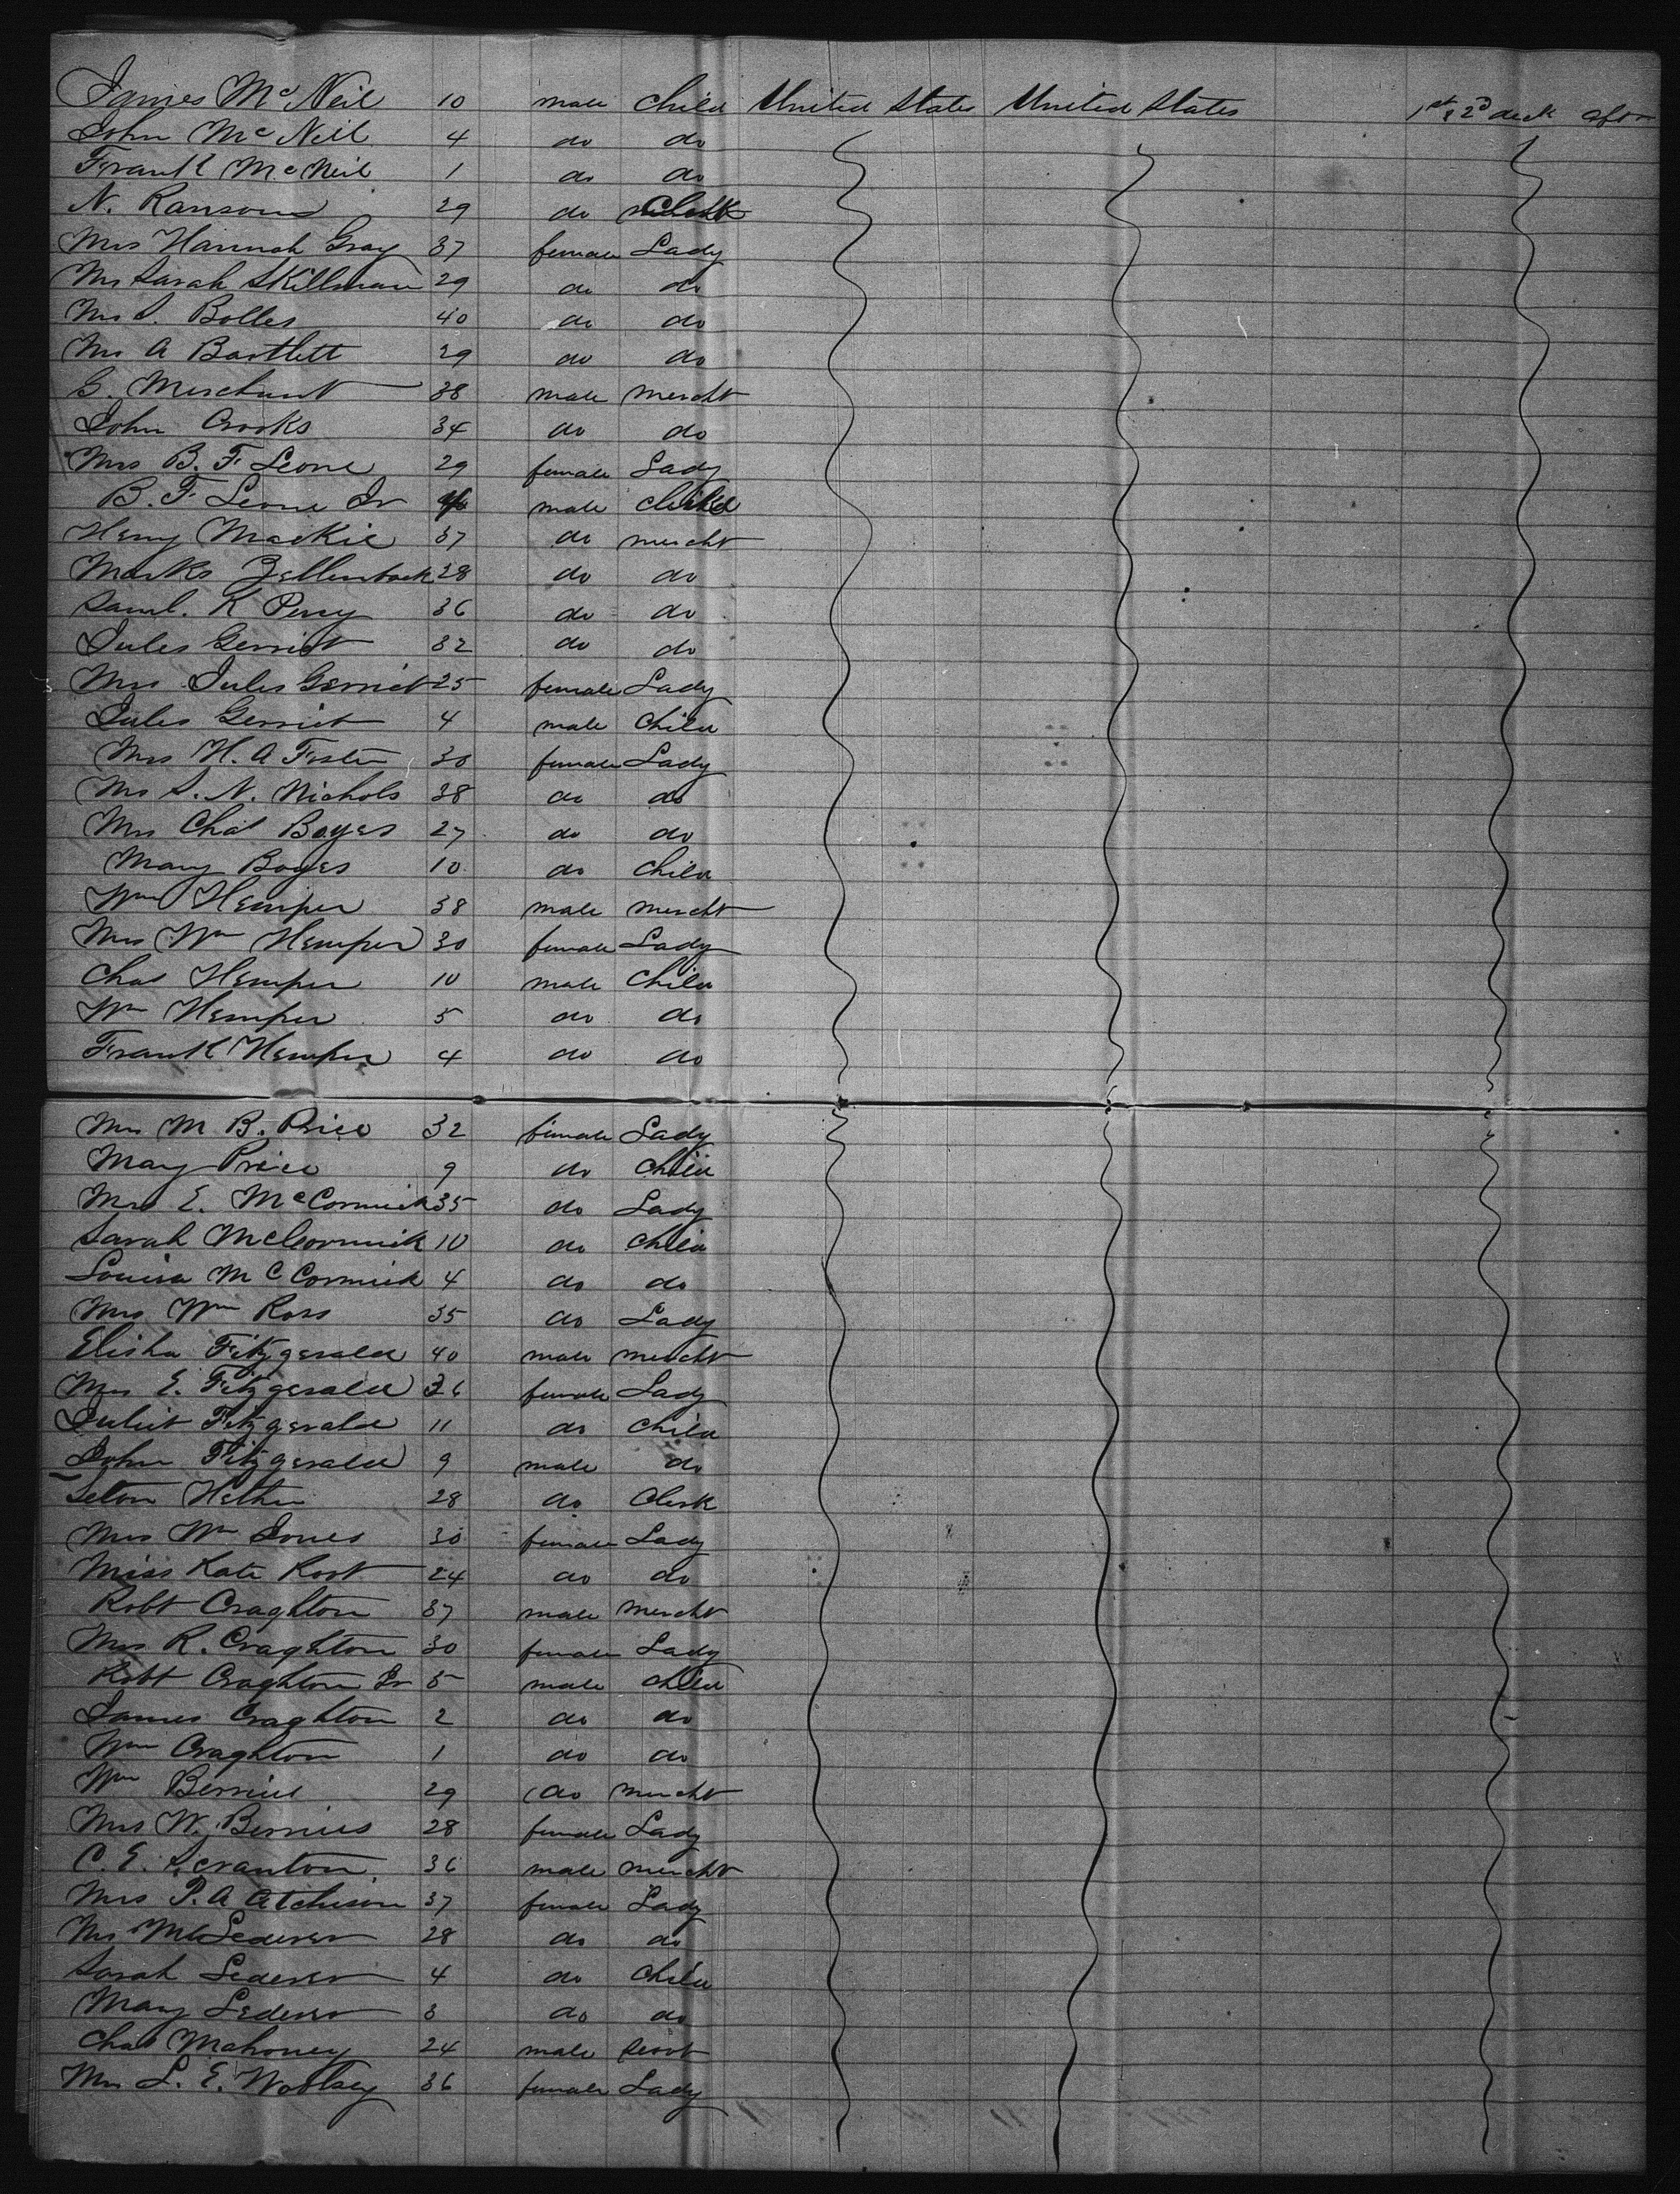 James McNeil 10 male child United States United States 1st & 2d deck aft
John McNeil 4 do do
Frank McNeil 1 do do
N. Ransom 29 do
Mrs Hannah Gray 37 female Lady
Mrs Sarah Skillman 29 do do
Mrs S. Bolles 40 do do
Mrs A Bartlett 29 do do
G. Merchant 38 male mercht
John Crooks 34 do do
Mrs B. F. Leone 29 female Lady
B. F. Leone Jr male child
Henry Mackie 37 do mercht
Marks Zellenback 28 do do
Saml. K Percy 36 do do
Jules Gerriot 32 do do
Mrs Jules Gerriot 25 female Lady
Jules Gerriot 4 male child
Mrs H. A Foster 30 female Lady
Mrs S. N. Nichols 38 do do
Mrs Chas Boyes 27 do do
Mary Boyes 10 do child
Wm Hemper 38 male mercht
Mrs Wm Hemper 30 female Lady
Chas Hemper 10 male child
Wm Hemper 5 do do
Frank Hemper 4 do do
Mrs M B. Price 32 female Lady
Mary Price 9 do child
Mrs E. McCormick 35 do Lady
Sarah McCormick 10 do child
Louisa McCormick 4 do do
Mrs Wm Ross 35 do Lady
Elisha Fitzgerald 40 male mercht
Mrs E. Fitzgerald 36 female Lady
Juliet Fitzgerald 11 do child
John Fitzgerald 9 male do
28 do Clerk
Mrs Wm Jones 30 female Lady
Miss Kate Rost 24 do do
Robt Craghton 37 male mercht
Mrs R. Craghton 30 female Lady
Robt Craghton Jr 5 male child
James Craghton 2 do do
Wm Craghton 1 do do
Wm 29 do mercht
Mrs W. 28 female Lady
C. E. Scranton 36 male mercht
Mrs P. A Atchison 37 female Lady
Mrs M Lederer 28 do do
Sarah Lederer 4 do child
Mary Lederer 3 do do
Chas Mahoney 24 male servt
Mrs L. E. Woolsey 36 female Lady